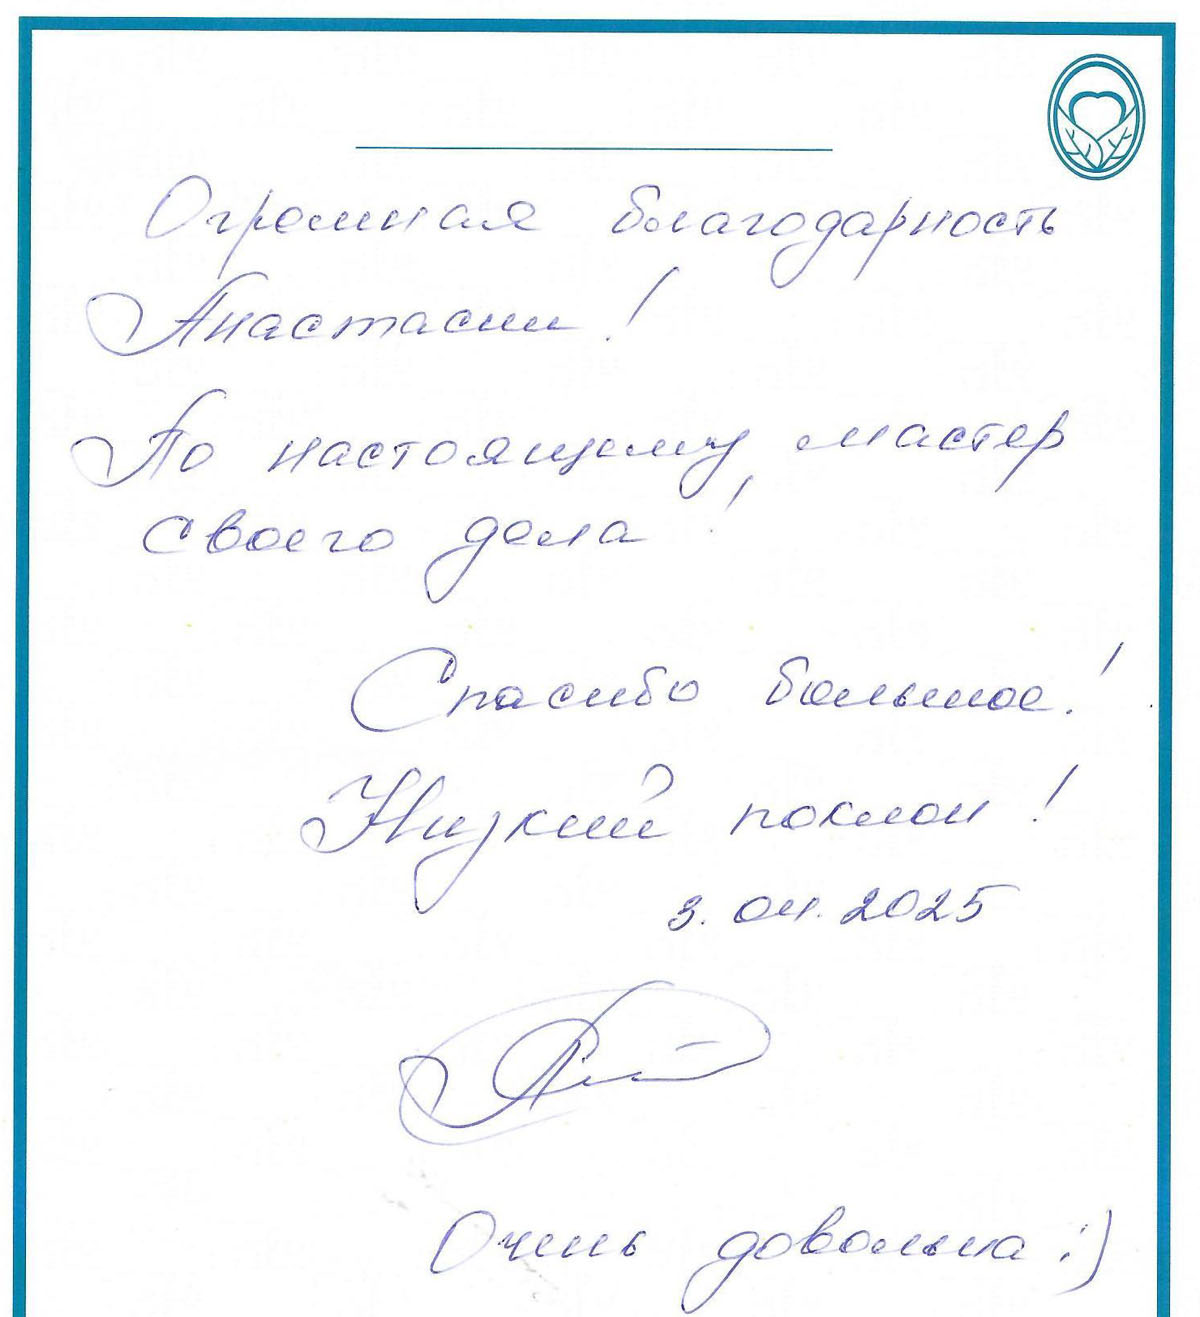 Огромная благодарность
Анастасии!
По настоящему, мастер
своего дела!
Спасибо большое!
Низкий поклон!
3.04.2025
Очень довольна :)